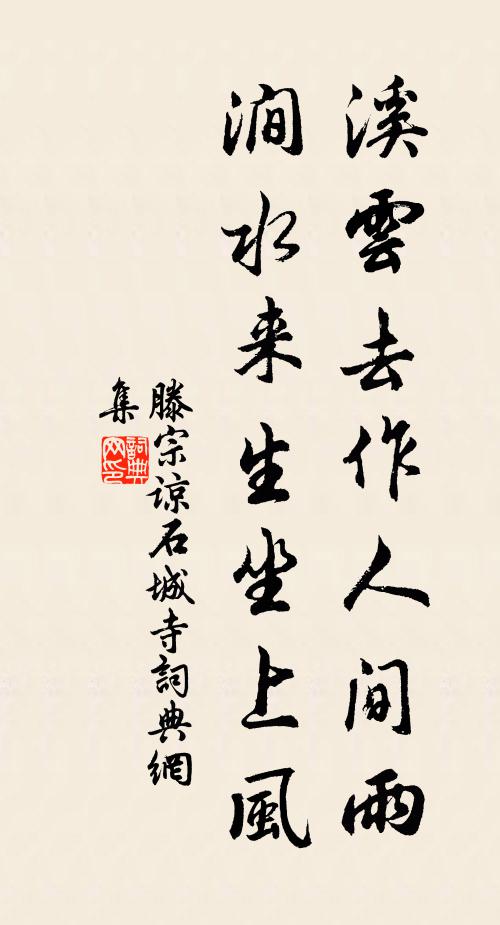 溪雲去作人間雨
澗水来生坐上風
滕宗諒石城寺詞典網
集
詞典
网印